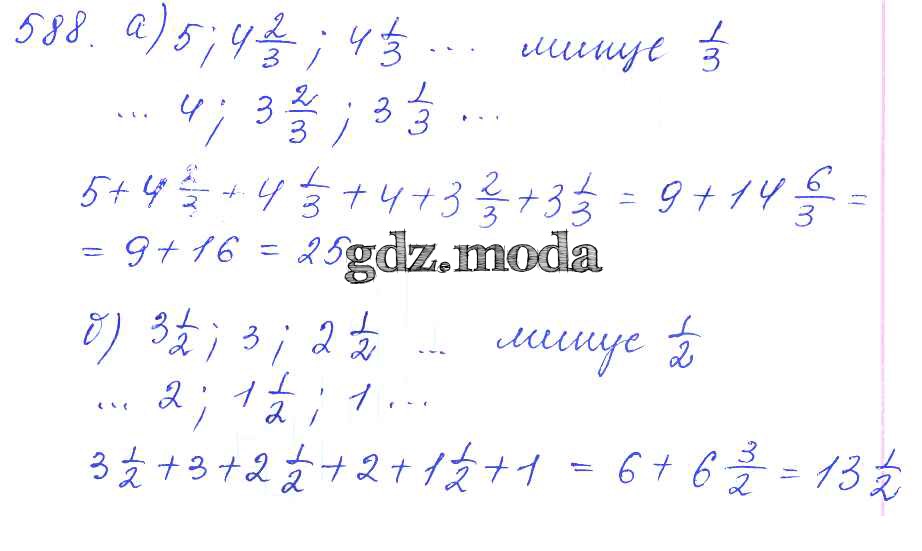 588. а) 5; 4 2/3; 4 1/3 ... минус 1/3
... 4; 3 2/3; 3 1/3 ...
5 + 4 2/3 + 4 1/3 + 4 + 3 2/3 + 3 1/3 = 9 + 14 6/3 =
= 9 + 16 = 25
gdz.moda
б) 3 1/2; 3; 2 1/2 ... минус 1/2
... 2; 1 1/2; 1 ...
3 1/2 + 3 + 2 1/2 + 2 + 1 1/2 + 1 = 6 + 6 3/2 = 13 1/2